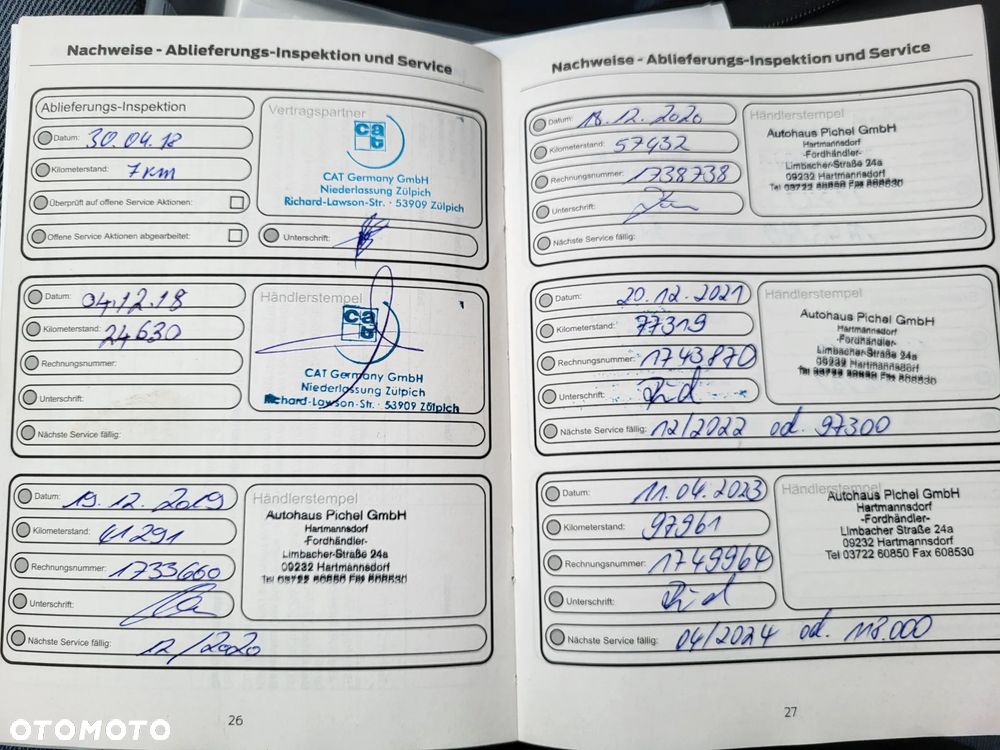 Nachweise - Ablieferungs-Inspektion und Service
Ablieferungs-Inspektion
Datum: 30.04.18
Kilometerstand: 7 km
Überprüft auf offene Service Aktionen:
Offene Service Aktionen abgearbeitet:
Vertragspartner
cat
CAT Germany GmbH
Niederlassung Zülpich
Richard-Lawson-Str. · 53909 Zülpich
Unterschrift:
Datum: 04.12.18
Kilometerstand: 24630
Rechnungsnummer:
Unterschrift:
Nächste Service fällig:
Händlerstempel
cat
CAT Germany GmbH
Niederlassung Zülpich
Richard-Lawson-Str. · 53909 Zülpich
Datum: 19.12.2019
Kilometerstand: 41291
Rechnungsnummer: 1733660
Unterschrift:
Nächste Service fällig: 12/2020
Händlerstempel
Autohaus Pichel GmbH
Hartmannsdorf
-Fordhändler-
Limbacher-Straße 24a
09232 Hartmannsdorf
Tel 03722 60850 Fax 608530
26
Nachweise - Ablieferungs-Inspektion und Service
Datum: 18.12.2020
Kilometerstand: 57432
Rechnungsnummer: 1738738
Unterschrift:
Nächste Service fällig:
Händlerstempel
Autohaus Pichel GmbH
Hartmannsdorf
-Fordhändler-
Limbacher-Straße 24a
09232 Hartmannsdorf
Tel 03722 60850 Fax 608530
Datum: 20.12.2021
Kilometerstand: 77319
Rechnungsnummer: 1743870
Unterschrift:
Nächste Service fällig: 12/2022 od. 97300
Händlerstempel
Autohaus Pichel GmbH
Hartmannsdorf
-Fordhändler-
Limbacher-Straße 24a
09232 Hartmannsdorf
Tel 03722 60850 Fax 608530
Datum: 11.04.2023
Kilometerstand: 97961
Rechnungsnummer: 1749964
Unterschrift:
Nächste Service fällig: 04/2024 od. 118.000
Händlerstempel
Autohaus Pichel GmbH
Hartmannsdorf
-Fordhändler-
Limbacher-Straße 24a
09232 Hartmannsdorf
Tel 03722 60850 Fax 608530
27
OTOMOTO